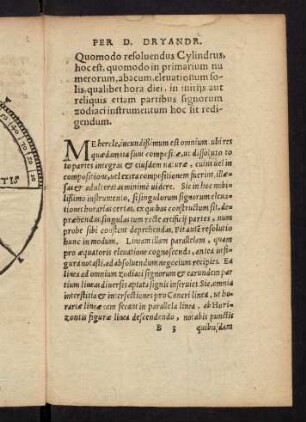 PER D. DRYANDR.
Quomodo resoluendus Cylindrus,
hoc est, quomodo in primarium nu
merorum, abacum, eleuationum so
lis, qualibet hora diei, in initijs aut
reliquis etiam partibus signorum
zodiaci instrumentum hoc sit redi-
gendum.
MEhercle, iucundissimum est omnium, ubi res
quædam ita sunt compositæ, ut dissoluto to
to partes integræ & eiusdem naturæ, cuius uel in
compositione, uel extra compositionem fuerint, illæ-
sas & adulteratas minime uidere. Sic in hoc nobi-
lissimo instrumento, si singulorum signorum eleuati-
ones horarias certas, ex quibus constructum sit, de-
præhendas singulas tum recte artificij partes, num
probe sibi constent deprehendas. Fit autē resolutio
hunc in modum. Lineam illam parallelam, quam
pro æquatoris eleuatione cognoscendi, antea in fi-
gura notasti, ad absoluendum negocium recipies. Ea
linea ad omnium zodiaci signorum & earundem par
tium lineas diuersis aptata signis inseruiet. Sic, omnia
interstitia & intersectiones pro Cancri linea, ut ho-
rariæ lineæ eam secant in parallela linea, ab Hori-
zontis figuræ linea descendendo, notabis punctis
B 3 quibusdam
TIS